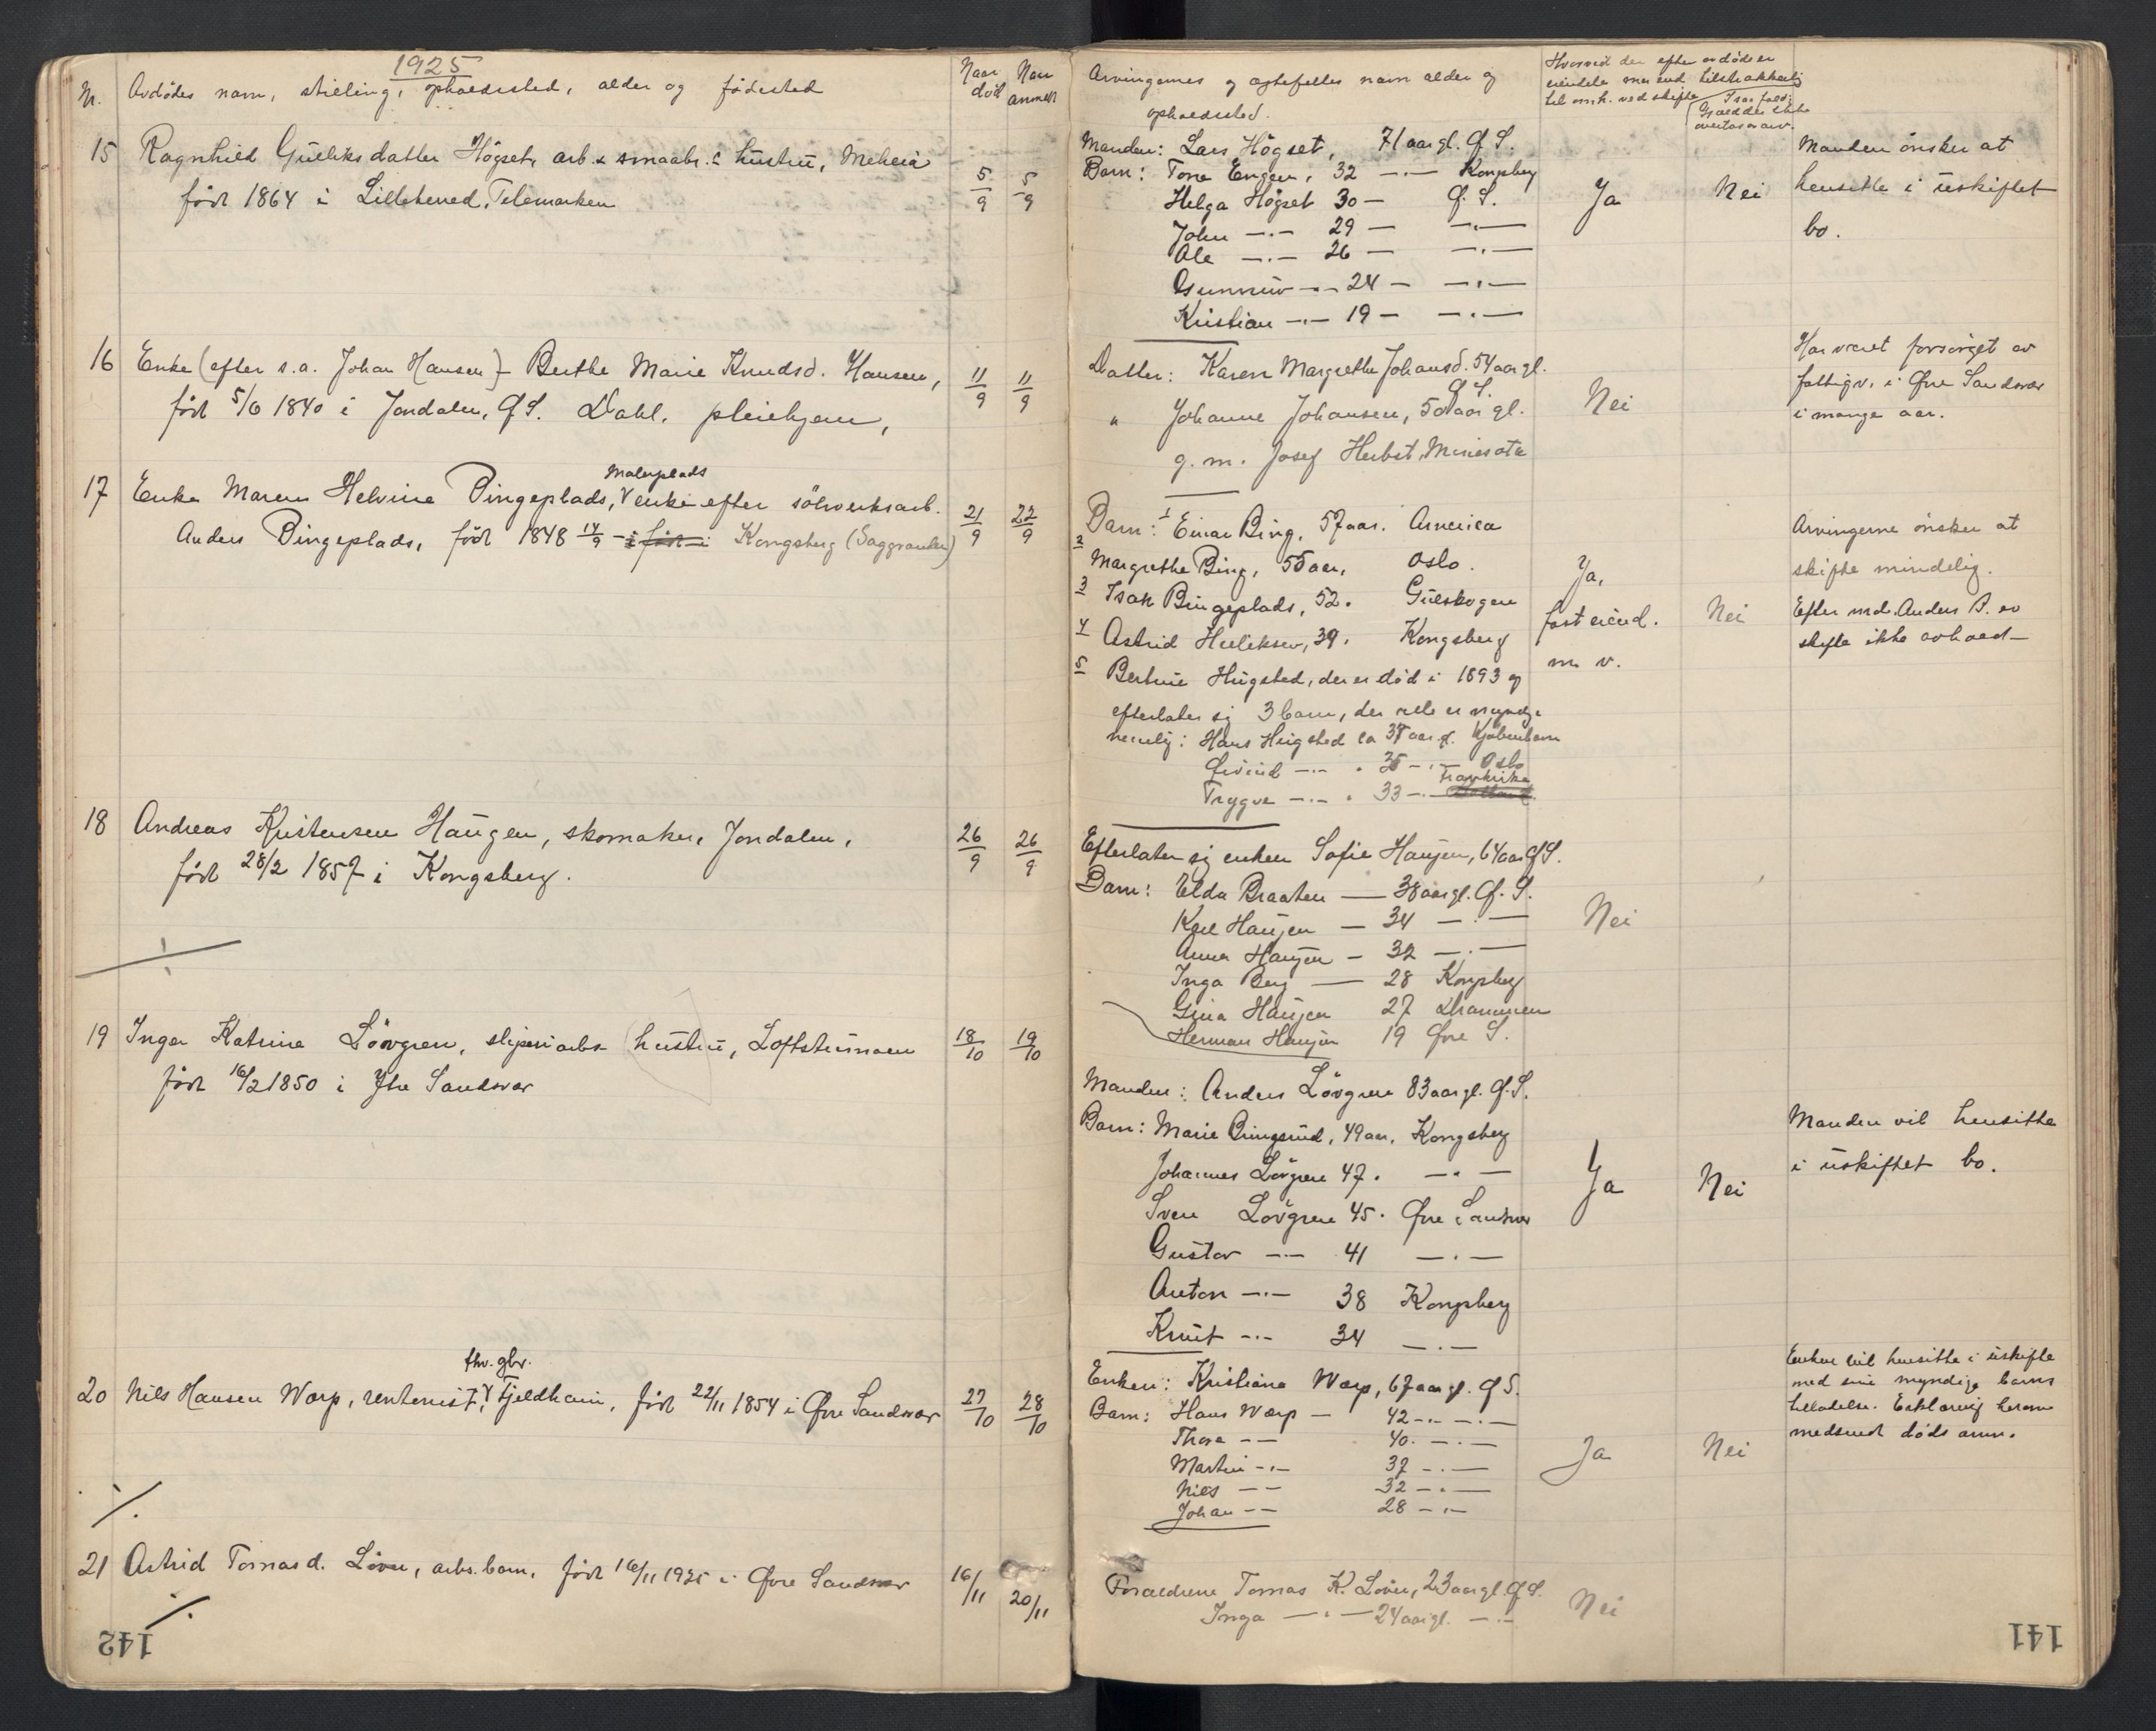 1925
Nr. Avdödes navn, stilling, opholdssted, alder og födested
Naar död
Naar anmeldt
15 Ragnhild Gulliksdatter Högset, arb. & smaabr.s hustru, Meheia
född 1864 i Lilleherred, Telemarken
5/9 5/9
16 Enke (efter s.a. Johan Hansen) Berthe Marie Knudsd. Hansen,
født 5/6 1840 i Jondalen, Ø S. Dahl, pleiehjem,
11/9 11/9
Malerplads
17 Enke Maren Helvine Bingeplads, V enke efter sölverksarb.
Anders Bingeplads, född 1848 14/9 - i Kongsberg (Saggrenden)
21/9 22/9
18 Andreas Kristensen Haugen, skomaker, Jondalen,
född 28/2 1857 i Kongsberg.
26/9 26/9
19 Inger Katrine Lövgren, sliperiarb. hustru, Loftstumoen
född 16/2 1850 i Ytre Sandsvær
18/10 19/10
fhv. gbr.
20 Nils Hansen Warp, rentenist, V Fjeldheim, född 22/11 1854 i Øvre Sandsvær
27/10 28/10
21 Astrid Tomasd. Löver, arbs. barn, född 16/11 1925 i Øvre Sandsvær
16/11 20/11
142
Arvingernes og ægtefelles navn alder og
opholdssted.
Hvorvidt der efter avdöde er
eiendele mer end tilstrækkelig
til omk. ved skifte
Manden: Lars Högset, 71 aar gl. Ø S.
Barn: Tone Engen, 32 -"- Kongsberg
Helga Högset 30 - Ø. S.
John -"- 29 - -"-
Ole -"- 26 - -"-
Gunnuv -"- 24 - -"-
Kristian -"- 19 - -"-
Ja Nei
Manden önsker at
hensitte i uskiftet
bo.
Datter: Karen Margrethe Johansd. 54 aar gl.
Ø S.
" Johanne Johansen, 50 aar gl.
g. m. Josef Herbst, Minisota
Nei
Har været forsörget av
fattigv. i Øvre Sandsvær
i mange aar.
Barn: 1 Einar Bing, 57 aar. America
2 Margrethe Bing, 55 aar, Oslo.
3 Isak Bingeplads, 52. Gulskogen
4 Astrid Hulleksen, 39. Kongsberg
5 Bertine Hugsted, der er död i 1893 og
efterlater sig 3 barn, der alle er myndige
nemlig: Hans Hugsted ca 37 aar g. Kjöbenhavn
Øivind -"- " 35 -"- Oslo
Frankrike
Trygve -"- " 33 -"-
Ja,
fast eiend.
m. v.
Nei
Arvingerne önsker at
skifte mindelig.
Efter md. Anders B. er
skifte ikke avholdt
Efterlater sig enken Sofie Haugen, 64 aar Ø S.
Barn: Elda Braaten — 38 aar gl. Ø. S.
Karl Haugen — 34 -"-
Anna Haugen - 32 -"-
Inga Berg — 28 Kongsberg
Gina Haugen 27 Drammen
Herman Haugen 19 Øvre S.
Nei
Manden: Anders Lövgren 83 aar gl. Ø. S.
Barn: Marie Bingsrud, 49 aar, Kongsberg
Johannes Lövgren 47. -"-
Sven Lövgren 45. Øvre Sandsvær
Gustav -"- 41 -"-
Anton -"- 38 Kongsberg
Knut -"- 34 -"-
Ja Nei
Manden vil hensitte
i uskiftet bo.
Enken: Kristiane Warp, 67 aar gl. Ø S.
Barn: Hans Warp - 42 -"- -"-
Thora -"- 40. -"-
Martin -"- 37 -"-
Nils -"- 32 -"-
Johan -"- 28 -"-
Ja Nei
Enken vil hensitte i uskifte
med sine myndige barns
tilladelse. Erklæring herom
medsendt döds anm.
Forældrene Tomas K. Löver, 23 aar gl. Ø S.
Inga -"- 24 aar gl. -"-
Nei
141